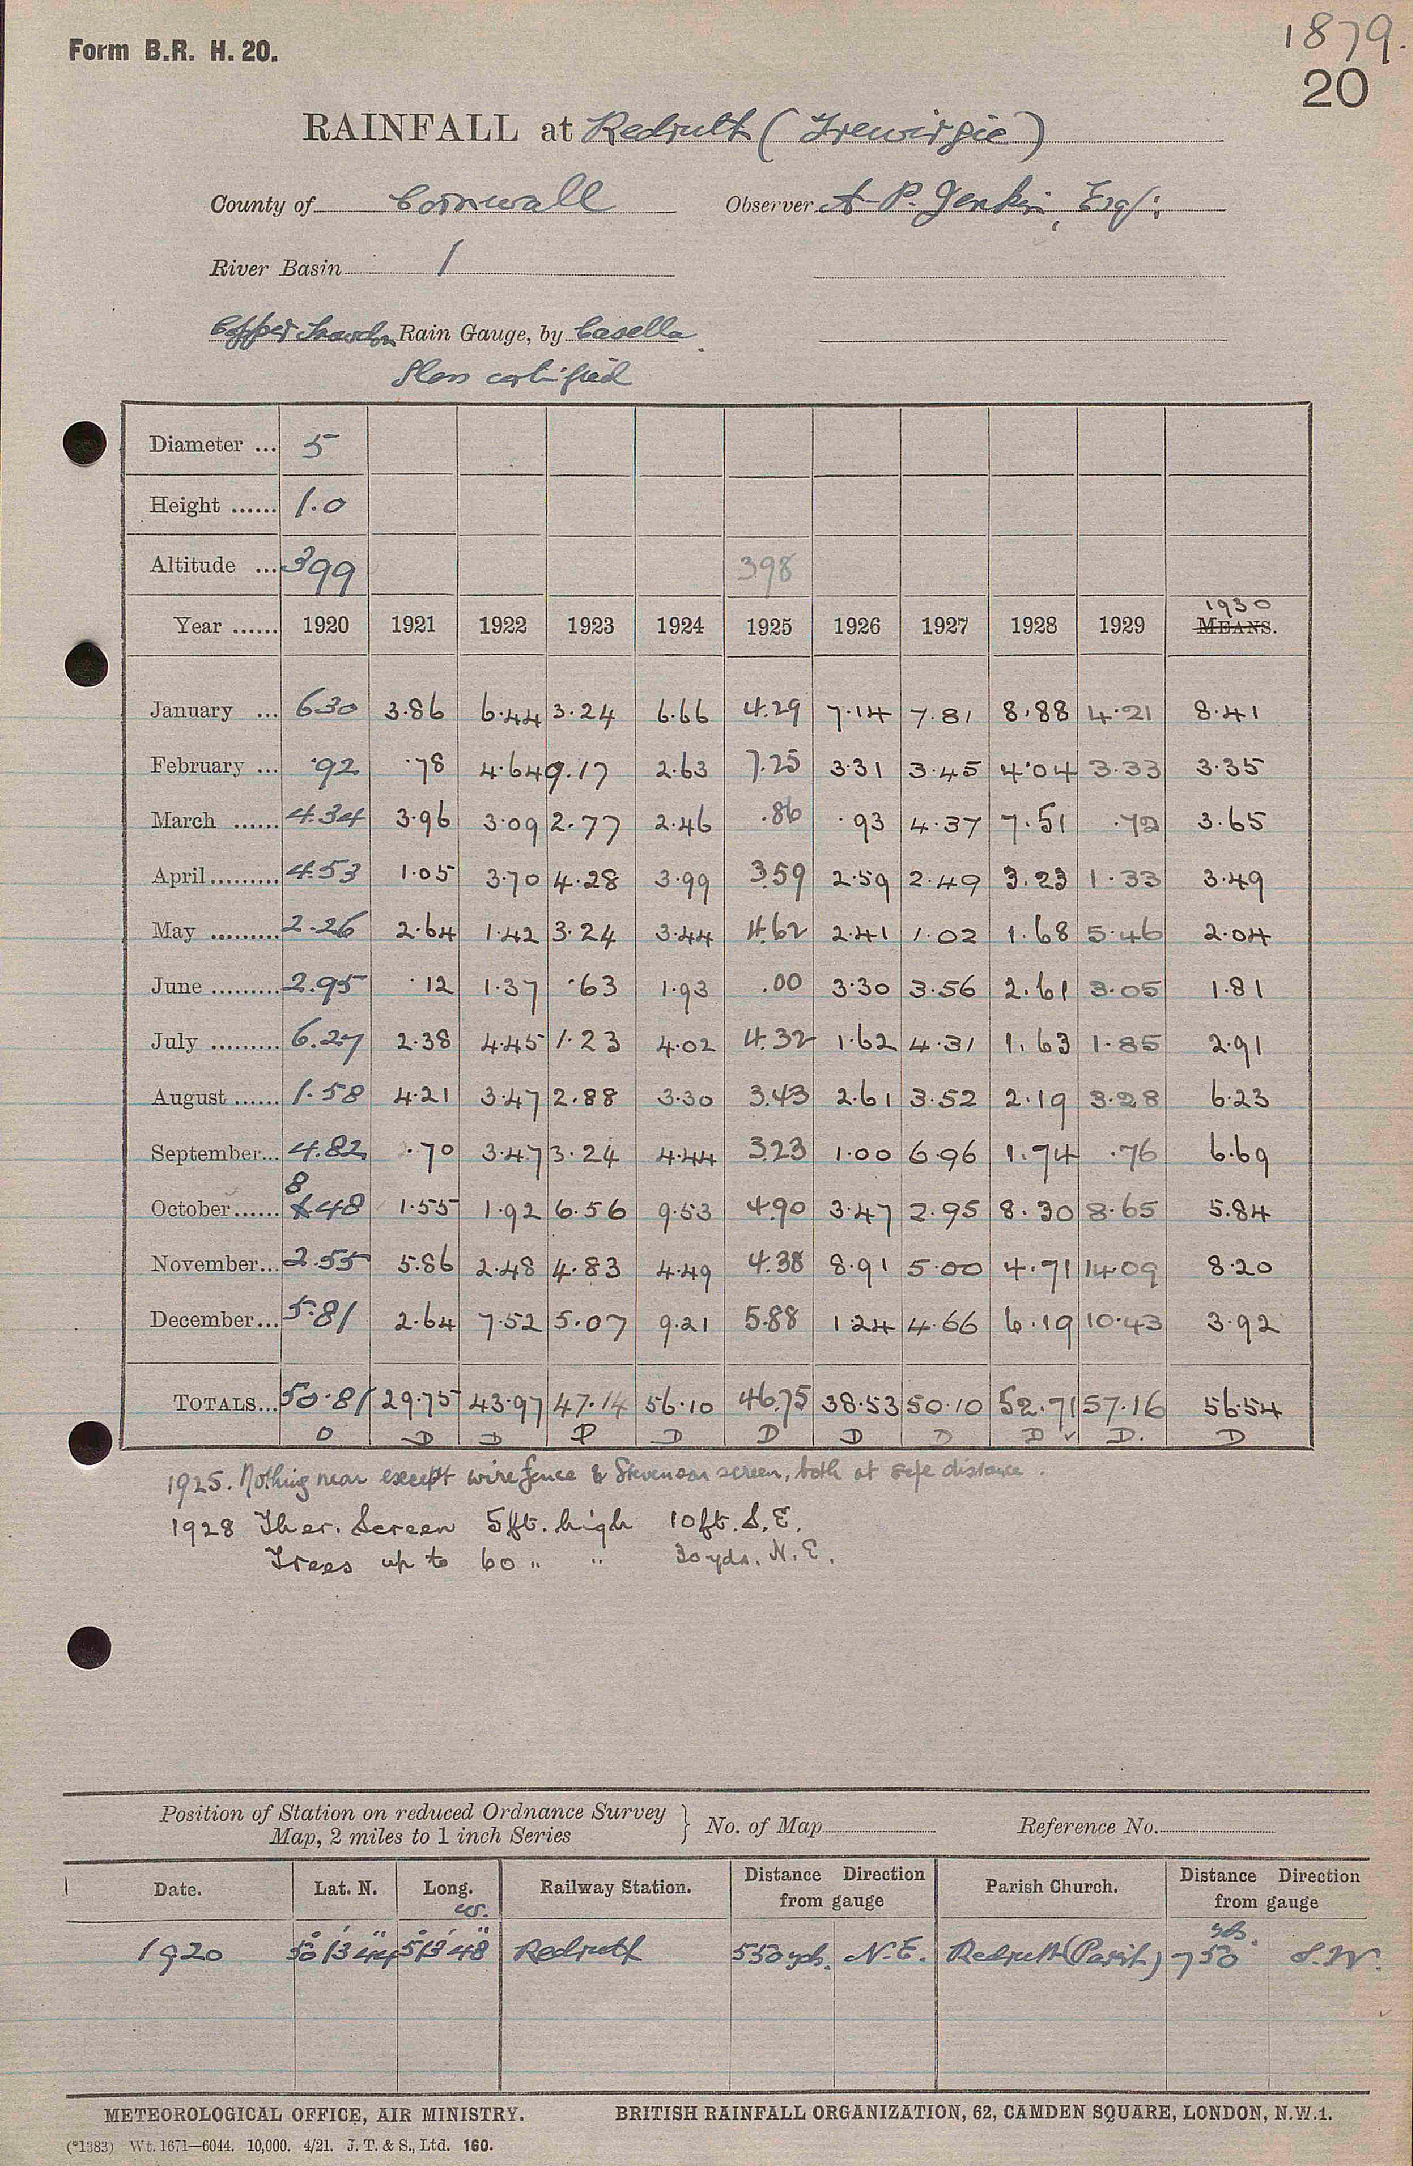 1879.
Form B.R. H. 20.
20
RAINFALL at Redruth (Trewirgie)
County of Cornwall Observer A. P. Jenkin, Esq.
River Basin 1
Copper Snowdon Rain Gauge, by Casella
Glass certified
Diameter ... 5
Height ...... 1.0
Altitude ... 399 398
Year ...... 1920 1921 1922 1923 1924 1925 1926 1927 1928 1929 1930 MEANS.
January ... 6.30 3.86 6.44 3.24 6.66 4.29 7.14 7.81 8.88 4.21 8.41
February ... .92 .78 4.64 9.17 2.63 7.25 3.31 3.45 4.04 3.33 3.35
March ...... 4.34 3.96 3.09 2.77 2.46 .86 .93 4.37 7.51 .72 3.65
April ......... 4.53 1.05 3.70 4.28 3.99 3.59 2.59 2.49 3.23 1.33 3.49
May ......... 2.26 2.64 1.42 3.24 3.44 4.62 2.41 1.02 1.68 5.46 2.04
June ......... 2.95 .12 1.37 .63 1.93 .00 3.30 3.56 2.61 3.05 1.81
July ......... 6.27 2.38 4.45 1.23 4.02 4.32 1.62 4.31 1.63 1.85 2.91
August ...... 1.58 4.21 3.47 2.88 3.30 3.43 2.61 3.52 2.19 3.28 6.23
September... 4.82 .70 3.47 3.24 4.44 3.23 1.00 6.96 1.94 .76 6.69
October ...... 8.48 1.55 1.92 6.56 9.53 4.90 3.47 2.95 8.30 8.65 5.84
November... 2.55 5.86 2.48 4.83 4.49 4.38 8.91 5.00 4.71 14.09 8.20
December... 5.81 2.64 7.52 5.07 9.21 5.88 1.24 4.66 6.19 10.43 3.92
TOTALS... 50.81 29.75 43.97 47.14 56.10 46.75 38.53 50.10 52.71 57.16 56.54
D D D D D D D D D D. D
1925. Nothing near except wire fence & Stevenson screen, both at safe distance.
1928 Ther. Screen 5ft. high 10ft. S.E.
Trees up to 60 " " 30 yds. N.E.
Position of Station on reduced Ordnance Survey Map, 2 miles to 1 inch Series } No. of Map Reference No.
Date. Lat. N. Long. W. Railway Station. Distance Direction from gauge Parish Church. Distance Direction from gauge
1920 50° 13' 44" 5° 13' 48" Redruth 550 yds. N.E. Redruth (Parish) 750 yds. S.W.
METEOROLOGICAL OFFICE, AIR MINISTRY. BRITISH RAINFALL ORGANIZATION, 62, CAMDEN SQUARE, LONDON, N.W.1.
(*1383) Wt. 1671—6044. 10,000. 4/21. J. T. & S., Ltd. 160.